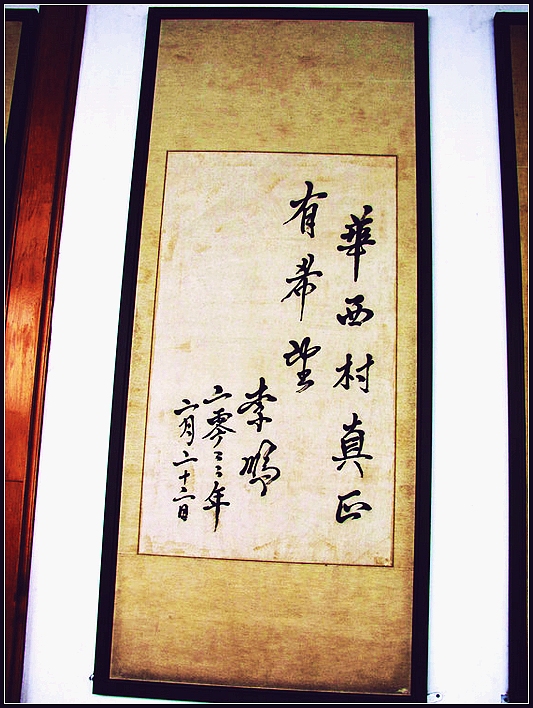 華西村真正
有希望
李鹏
二零零二年
二月二十二日